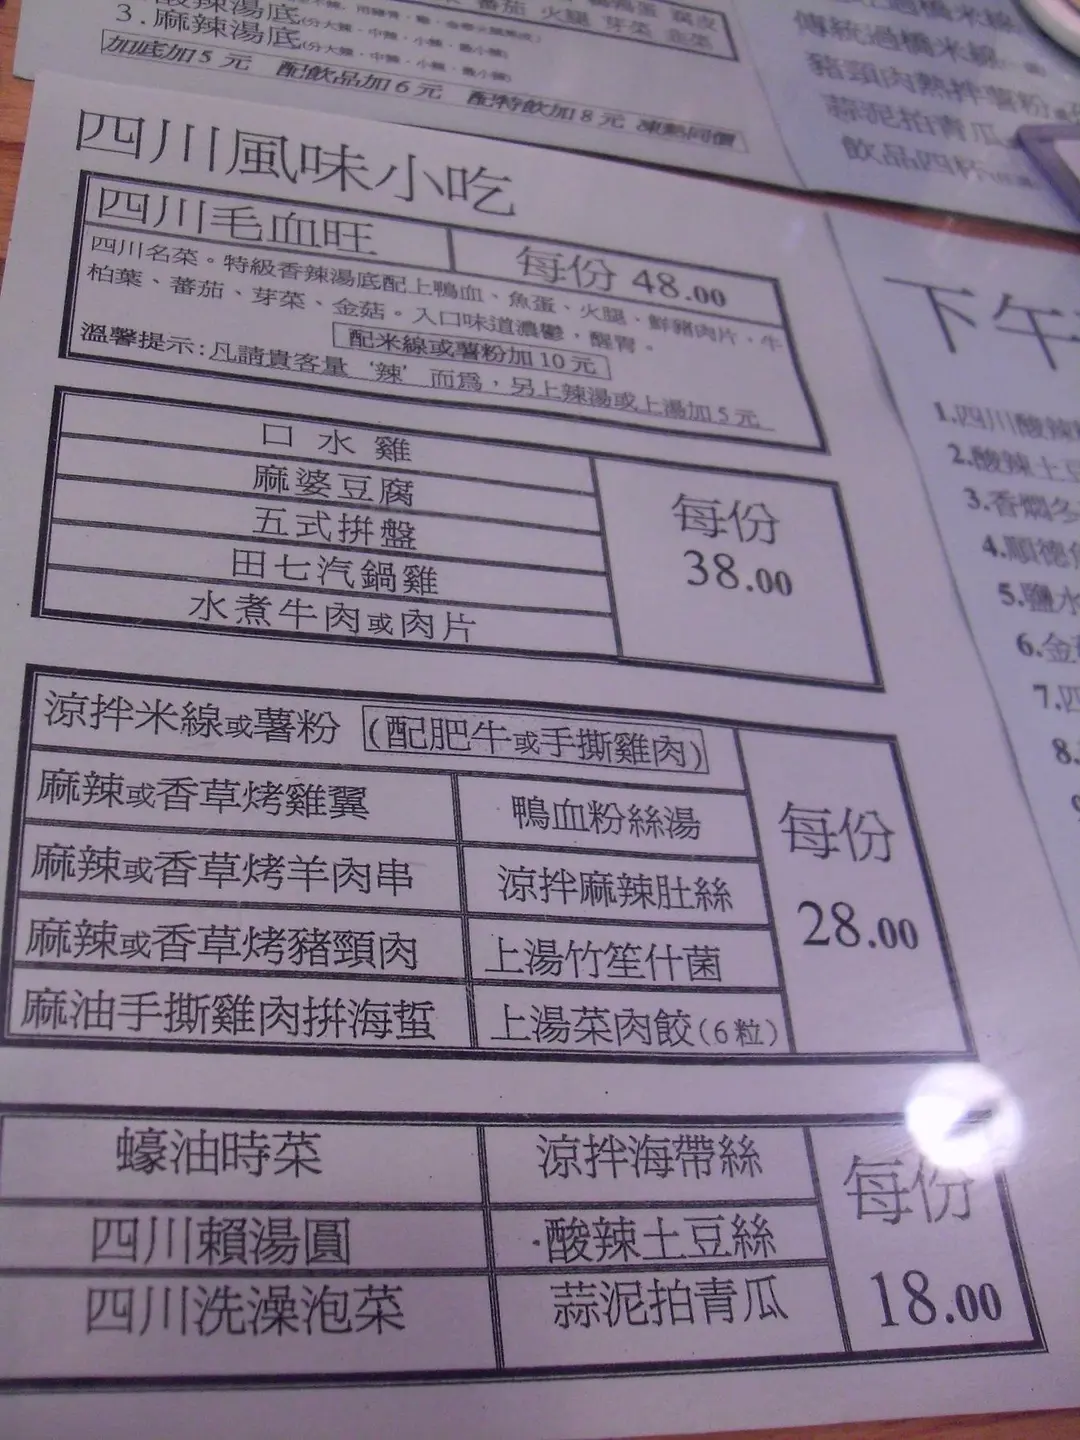 3.麻辣湯底(分大辣·中辣·小辣·最小辣)
加底加5元 配飲品加6元 配特飲加8元 凍熱同價
傳統過橋米線
豬頸肉熱拌薯粉
蒜泥拍青瓜
飲品四杯
四川風味小吃
四川毛血旺
每份 48.00
四川名菜。特級香辣湯底配上鴨血、魚蛋、火腿、鮮豬肉片，牛
柏葉、蕃茄、芽菜、金菇。入口味道濃鬱，醒胃。
配米線或薯粉加10元
溫馨提示:凡請貴客量‘辣’而為，另上辣湯或上湯加5元
口水雞
麻婆豆腐
五式拼盤
田七汽鍋雞
水煮牛肉或肉片
每份
38.00
涼拌米線或薯粉 (配肥牛或手撕雞肉)
麻辣或香草烤雞翼
鴨血粉絲湯
麻辣或香草烤羊肉串
涼拌麻辣肚絲
麻辣或香草烤豬頸肉
上湯竹笙什菌
麻油手撕雞肉拼海蜇
上湯菜肉餃(6粒)
每份
28.00
蠔油時菜
涼拌海帶絲
四川賴湯圓
酸辣土豆絲
四川洗澡泡菜
蒜泥拍青瓜
每份
18.00
下午
1.四川酸辣
2.酸辣土豆
3.香燜冬
4.順德魚
5.鹽水
6.金
7.四
8.